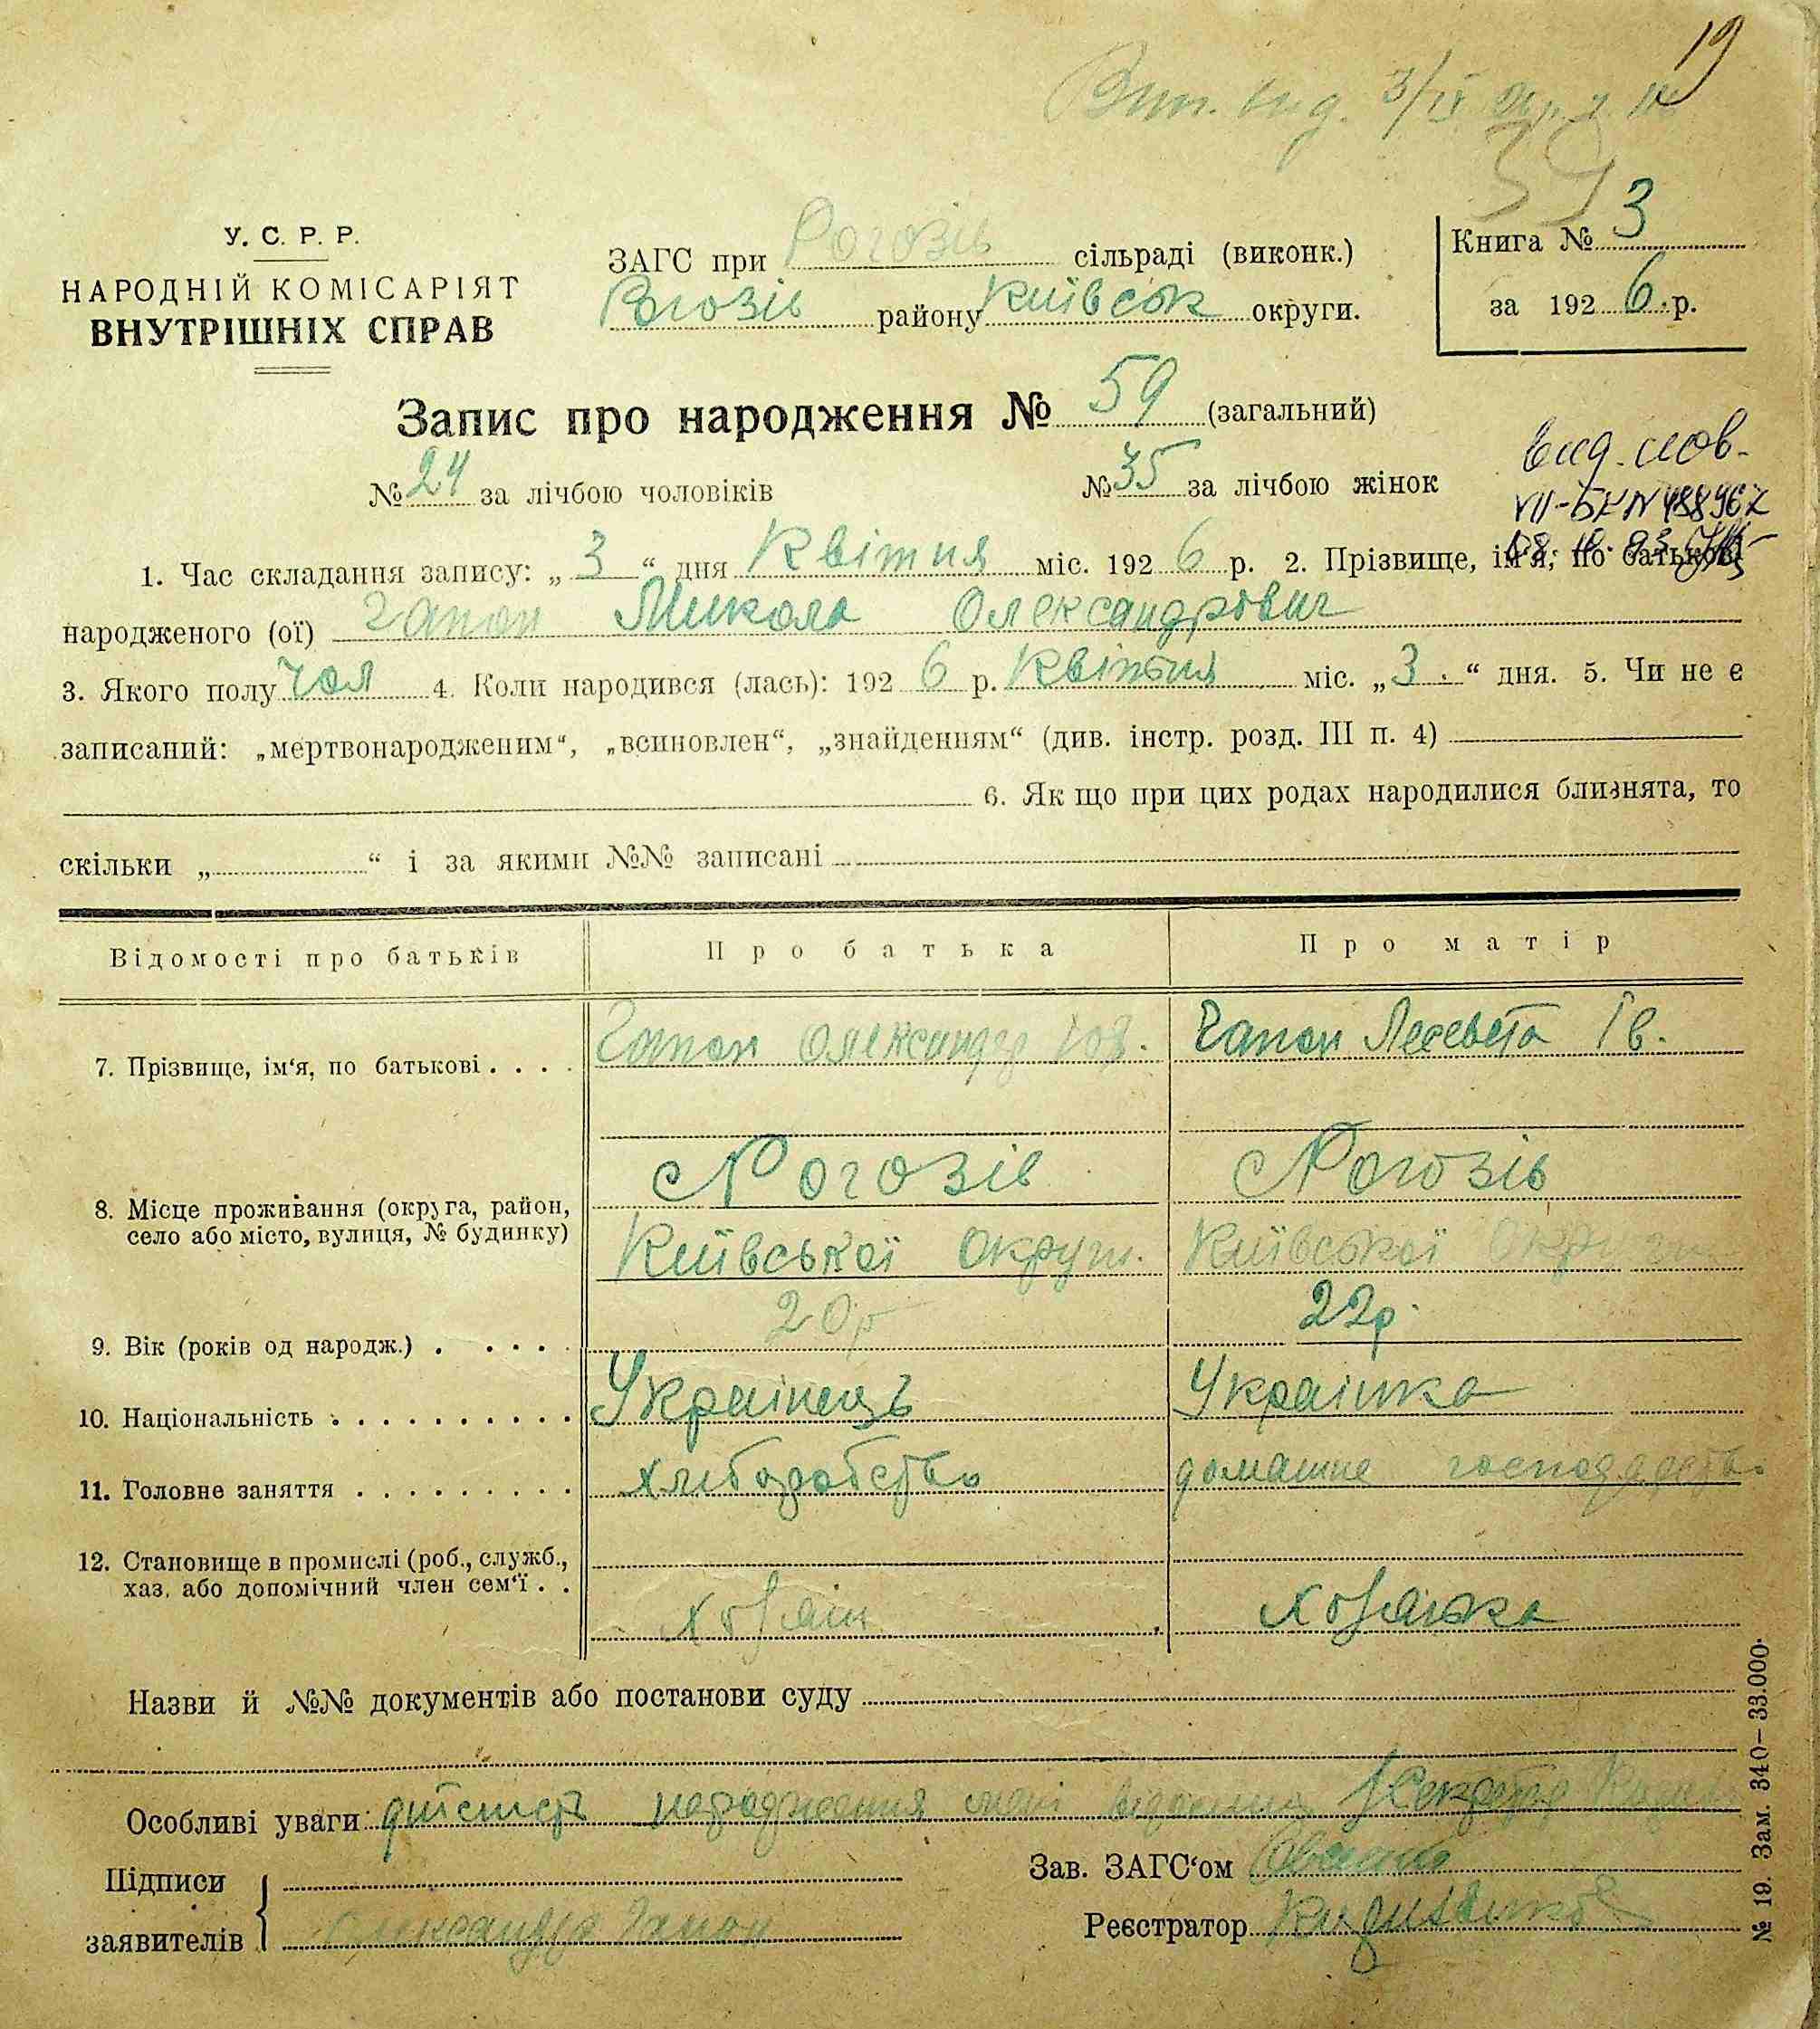 19
Вип. вид. 3/IV
39
У. С. Р. Р.
НАРОДНІЙ КОМІСАРІЯТ
ВНУТРІШНІХ СПРАВ
ЗАГС при Рогозів сільраді (виконк.)
Рогозів району Київськ округи.
Книга № 3
за 1926 р.
Запис про народження № 59 (загальний)
№ 24 за лічбою чоловіків № 35 за лічбою жінок
вид. пов.
VII-БК N
1. Час складання запису: „3“ дня Квітня міс. 1926 р. 2. Прізвище, ім'я, по батькові
народженого (ої) Гапон Микола Олександрович
3. Якого полу чол 4. Коли народився (лась): 1926 р. Квітня міс. „3.“ дня. 5. Чи не є
записаний: „мертвонародженим“, „всиновлен“, „знайденням“ (див. інстр. розд. III п. 4)
6. Як що при цих родах народилися близнята, то
скільки „ “ і за якими №№ записані
Відомості про батьків Про батька Про матір
7. Прізвище, ім'я, по батькові . . . . Гапон Олександр Гапон Лесевета Ів.
8. Місце проживання (округа, район,
село або місто, вулиця, № будинку)
с Рогозів с Рогозів
Київської Округи. Київської Округи
9. Вік (років од народж.) . . . . . 20р 22р.
10. Національність . . . . . . . . . . Українець Українка
11. Головне заняття . . . . . . . . . хліборобство домашне господарство
12. Становище в промислі (роб., служб.,
хаз. або допомічний член сем'ї . .
хозяін хозяйка
Назви й №№ документів або постанови суду
Особливі уваги: дійсність народження мені відома Секретар
Підписи
заявителів Олександр Гапон
Зав. ЗАГС'ом
Реєстратор
№ 19. Зам. 340—33.000.